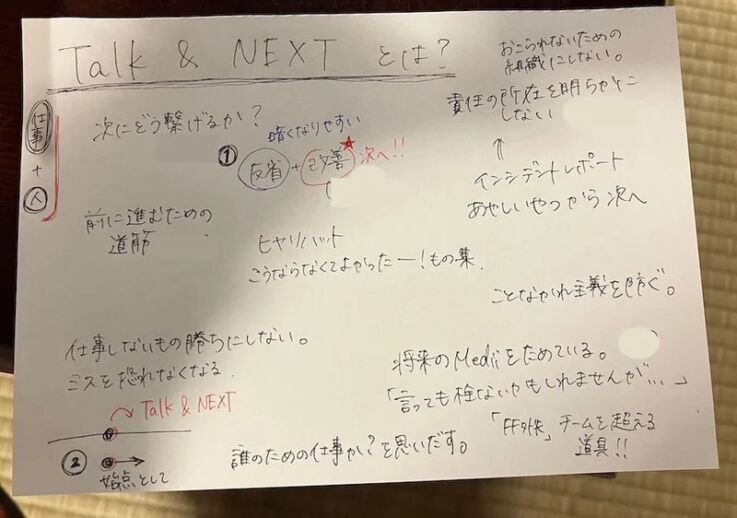 Talk & NEXT とは？
仕事
+
人
次にどう繋げるか？
暗くなりやすい
① 反省 + 改善 次へ!!
おこられないための
組織にしない。
責任の所在を明らかに
しない
↑
インシデントレポート
あやしいやつから次へ
前に進むための
道筋
ヒヤリハット
こうならなくてよかったー！もの集
ことなかれ主義を防ぐ。
仕事しないもの勝ちにしない。
ミスを恐れなくなる
Talk & NEXT
②
始点として
将来のMediiをためている。
「言っても栓ないかもしれませんが…」
「FF外失」チームを超える
道具!!
誰のための仕事か？を思いだす。